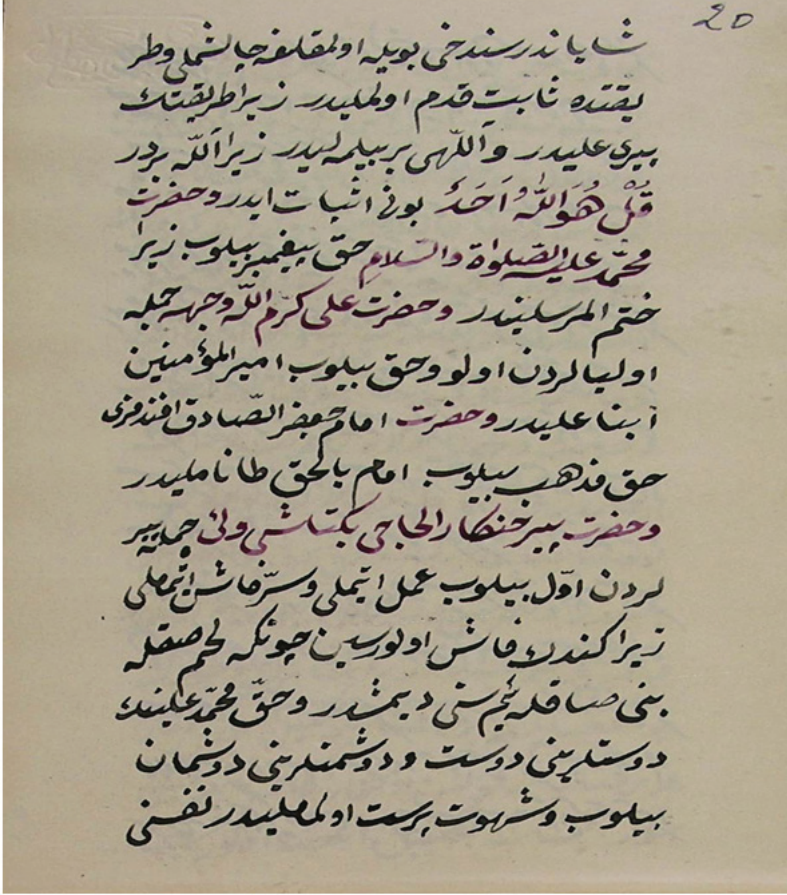 20
شایاندر سندخی بویله اولمقلغه چالشملی وطر
یقتده ثابت قدم اولملیدر زیرا طریقتك
پیری علیدر واللّهی بر بیلمه لیدر زیرا اللّه بردر
قُلْ هُوَ اللّٰهُ اَحَدٌ بونی اثبات ایدر وحضرت
محمّد علیه الصّلوٰة والسّلام حقّ پیغمبر بیلوب زیرا
ختم المرسلیندر وحضرت علی کرّم اللّه وجهه جمله
اولیالردن اولو وحق بیلوب امیر المؤمنین
ابنا علیدر وحضرت امام جعفر الصّادق افندمزی
حق مذهب بیلوب امام بالحق طانا ملیدر
وحضرت پیر خنکار الحاجی بکتاشی ولی جمله پیر
لردن اوّل بیلوب عمل اتیملی وسرّ فاش اتیمملی
زیرا کندك فاش اولورسین چونکه لحم صقله
بنی صاقلەیم سنی دیمشدر وحقّ محمّد علینك
دوستلرینی دوست ودوشمنلرینی دوشمان
بیلوب وشهوت پرست اولماملیدر نفسنی